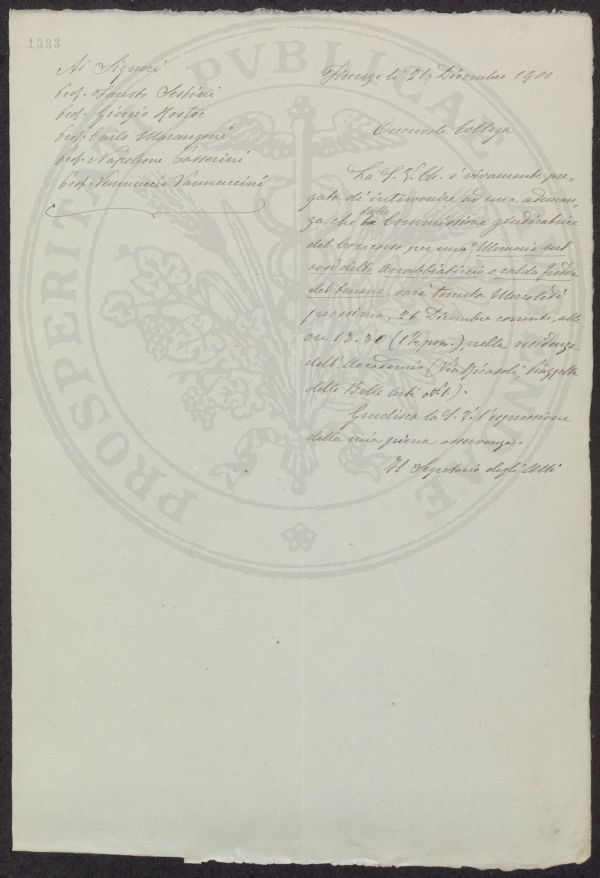 1383
Ai Signori
Prof. Fausto Sestini
Prof. Giorgio Roster
Prof. Carlo Marangoni
Prof. Napoleone Passerini
Prof. Vannuccio Vannuccini
Firenze li 21. Dicembre 1900
Onorevole Collega
La S. V. Ill. è vivamente pre-
gata di intervenire ad una adunan-
za che dalla Commissione giudicatrice
del Concorso per una "Memoria sul
così detto Arrabbiaticcio o caldafredda
del terreno, sarà tenuta Mercoledì
prossimo, 26 Dicembre corrente, alle
ore 13.30 (1½ pom.) nella residenza
dell'Accademia (Via Ricasoli, Piazzetta
delle Belle Arti N.1.).
Gradisca la S. V. l'espressione
della mia piena osservanza.
Il Segretario degli Atti
PROSPERITATI PVBLICAE